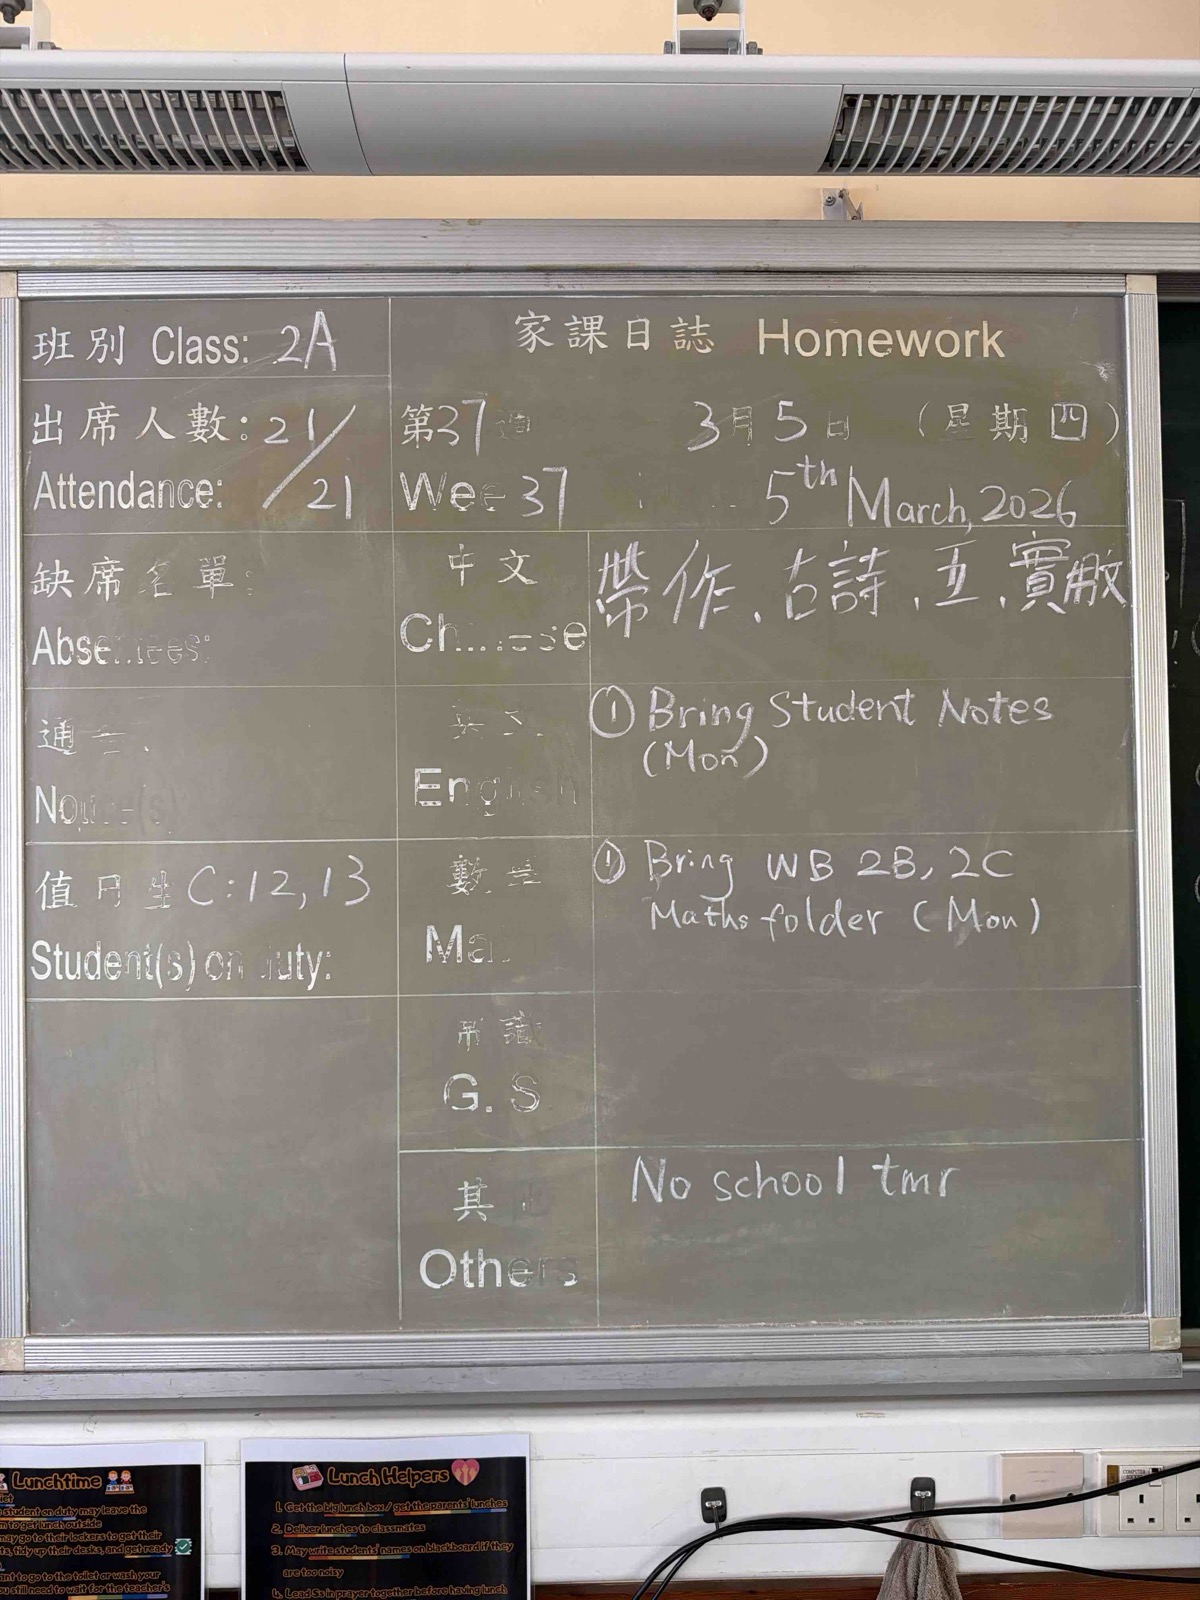 班別 Class: 2A
家課日誌 Homework
出席人數: 21/
Attendance: /21
第37週
3月5日 (星期四)
Week 37
5th March, 2026
缺席名單:
Absentees:
中文
Chinese
帶作、古詩、五、實
通告
Notice(s)
英文
English
① Bring Student Notes
(Mon)
值日生 C: 12, 13
Student(s) on duty:
數學
Ma
① Bring WB 2B, 2C
Maths folder (Mon)
常識
G. S
其他
Others
No school tmr
Lunchtime
student on duty may leave the
to get lunch outside
may go to their lockers to get their
tidy up their desks, and get ready
want to go to the toilet or wash your
still need to wait for the teacher's
Lunch Helpers
1. Get the big lunch box / get the parents' lunches
2. Deliver lunches to classmates
3. May write students' names on blackboard if they
are too noisy
4. Lead Ss in prayer together before having lunch